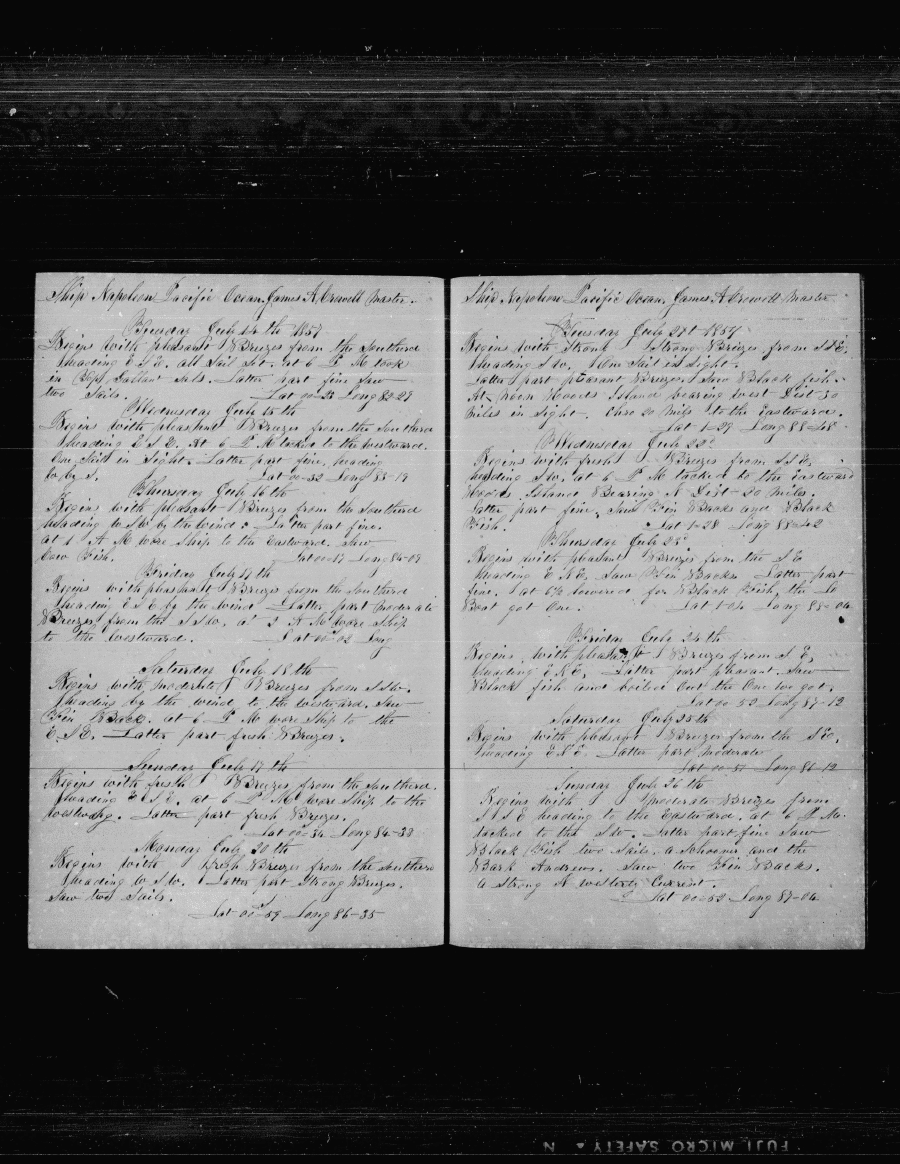 Ship Napoleon Pacific Ocean. James A. Crowell Master.
Tuesday July 14th 1857
Begins with pleasant Breezes from the Southerd
heading E S E. all Sail Set. at 6 P M took
in Top Gallant Sals. Latter part fine Saw
two Sails. Lat 00-25 Long 82-29
Wednesday July 15th
Begins with pleasant Breezes from the Southerd
heading E S E. At 6 P M tacked to the westward.
One Sail in Sight. Latter part fine, heading
by S. Lat 00-32 Long 83-19
Thursday July 16th
Begins with pleasant Breezes from the Southerd
heading W S W by the wind. Latter part fine.
at 1 A M wore Ship to the Eastward. Saw
Cow Fish. Lat 00-17 Long 84-09
Friday July 17th
Begins with pleasant Breezes from the Southerd
heading E S E by the wind Latter part moderate
Breezes from the S S W. at 3 A M wore Ship
to the westward. Lat 00-02 Long
Saturday July 18th
Begins with moderate Breezes from S S W.
heading by the wind to the westward, Saw
Fin Back. at 6 P M wore Ship to the
E S E. Latter part fresh Breezes.
Sunday July 19th
Begins with fresh Breezes from the Southerd.
heading E S E. at 6 P M wore Ship to the
westward. Latter part fresh Breezes.
Lat 00-34 Long 84-33
Monday July 20th
Begins with fresh Breezes from the Southern
heading W S W. Latter part Strong Breezes.
Saw two Sails.
Lat 00-59 Long 86-35
Ship Napoleon Pacific Ocean. James A Crowell Master
Tuesday July 21st 1857
Begins with Strong Strong Breezes from S S E.
heading S W. One Sail in Sight.
Latter part pleasant Breezes. Saw Black fish.
At Noon Hoods Island bearing west Dist 30
miles in Sight. Chro 20 Mils to the Eastward.
Lat 1-27 Long 88-48
Wednesday July 22d
Begins with fresh Breezes from S S E,
heading S W. at 6 P M tacked to the Eastward
Hoods Island Bearing N Dist-20 miles.
Latter part fine, Saw Fin Backs and Black
Fish. Lat 1-28 Long 88-42
Thursday July 23d
Begins with pleasant Breezes from the S E
heading E N E, Saw Fin Backs. Latter part
fine. at lowered for Black Fish, the
Boat got One. Lat 1-04 Long 88-04
Friday July 24th
Begins with pleasant Breezes from S E,
heading E N E, Latter part pleasant. Saw
Black fish and boiled out the One we got.
Lat 00-53 Long 87-12
Saturday July 25th
Begins with pleasant Breezes from the S E,
heading E N E. Latter part moderate
Lat 00-57 Long 86-12
Sunday July 26th
Begins with moderate Breezes from
S S E heading to the Eastward. at 6 P M.
tacked to the S W. Latter part fine Saw
Black Fish two Sails, a Schooner and the
Bark Andrews. Saw two Fin Backs.
a Strong N westerly Current.
Lat 00-52 Long 87-04
FUJI MICRO SAFETY N